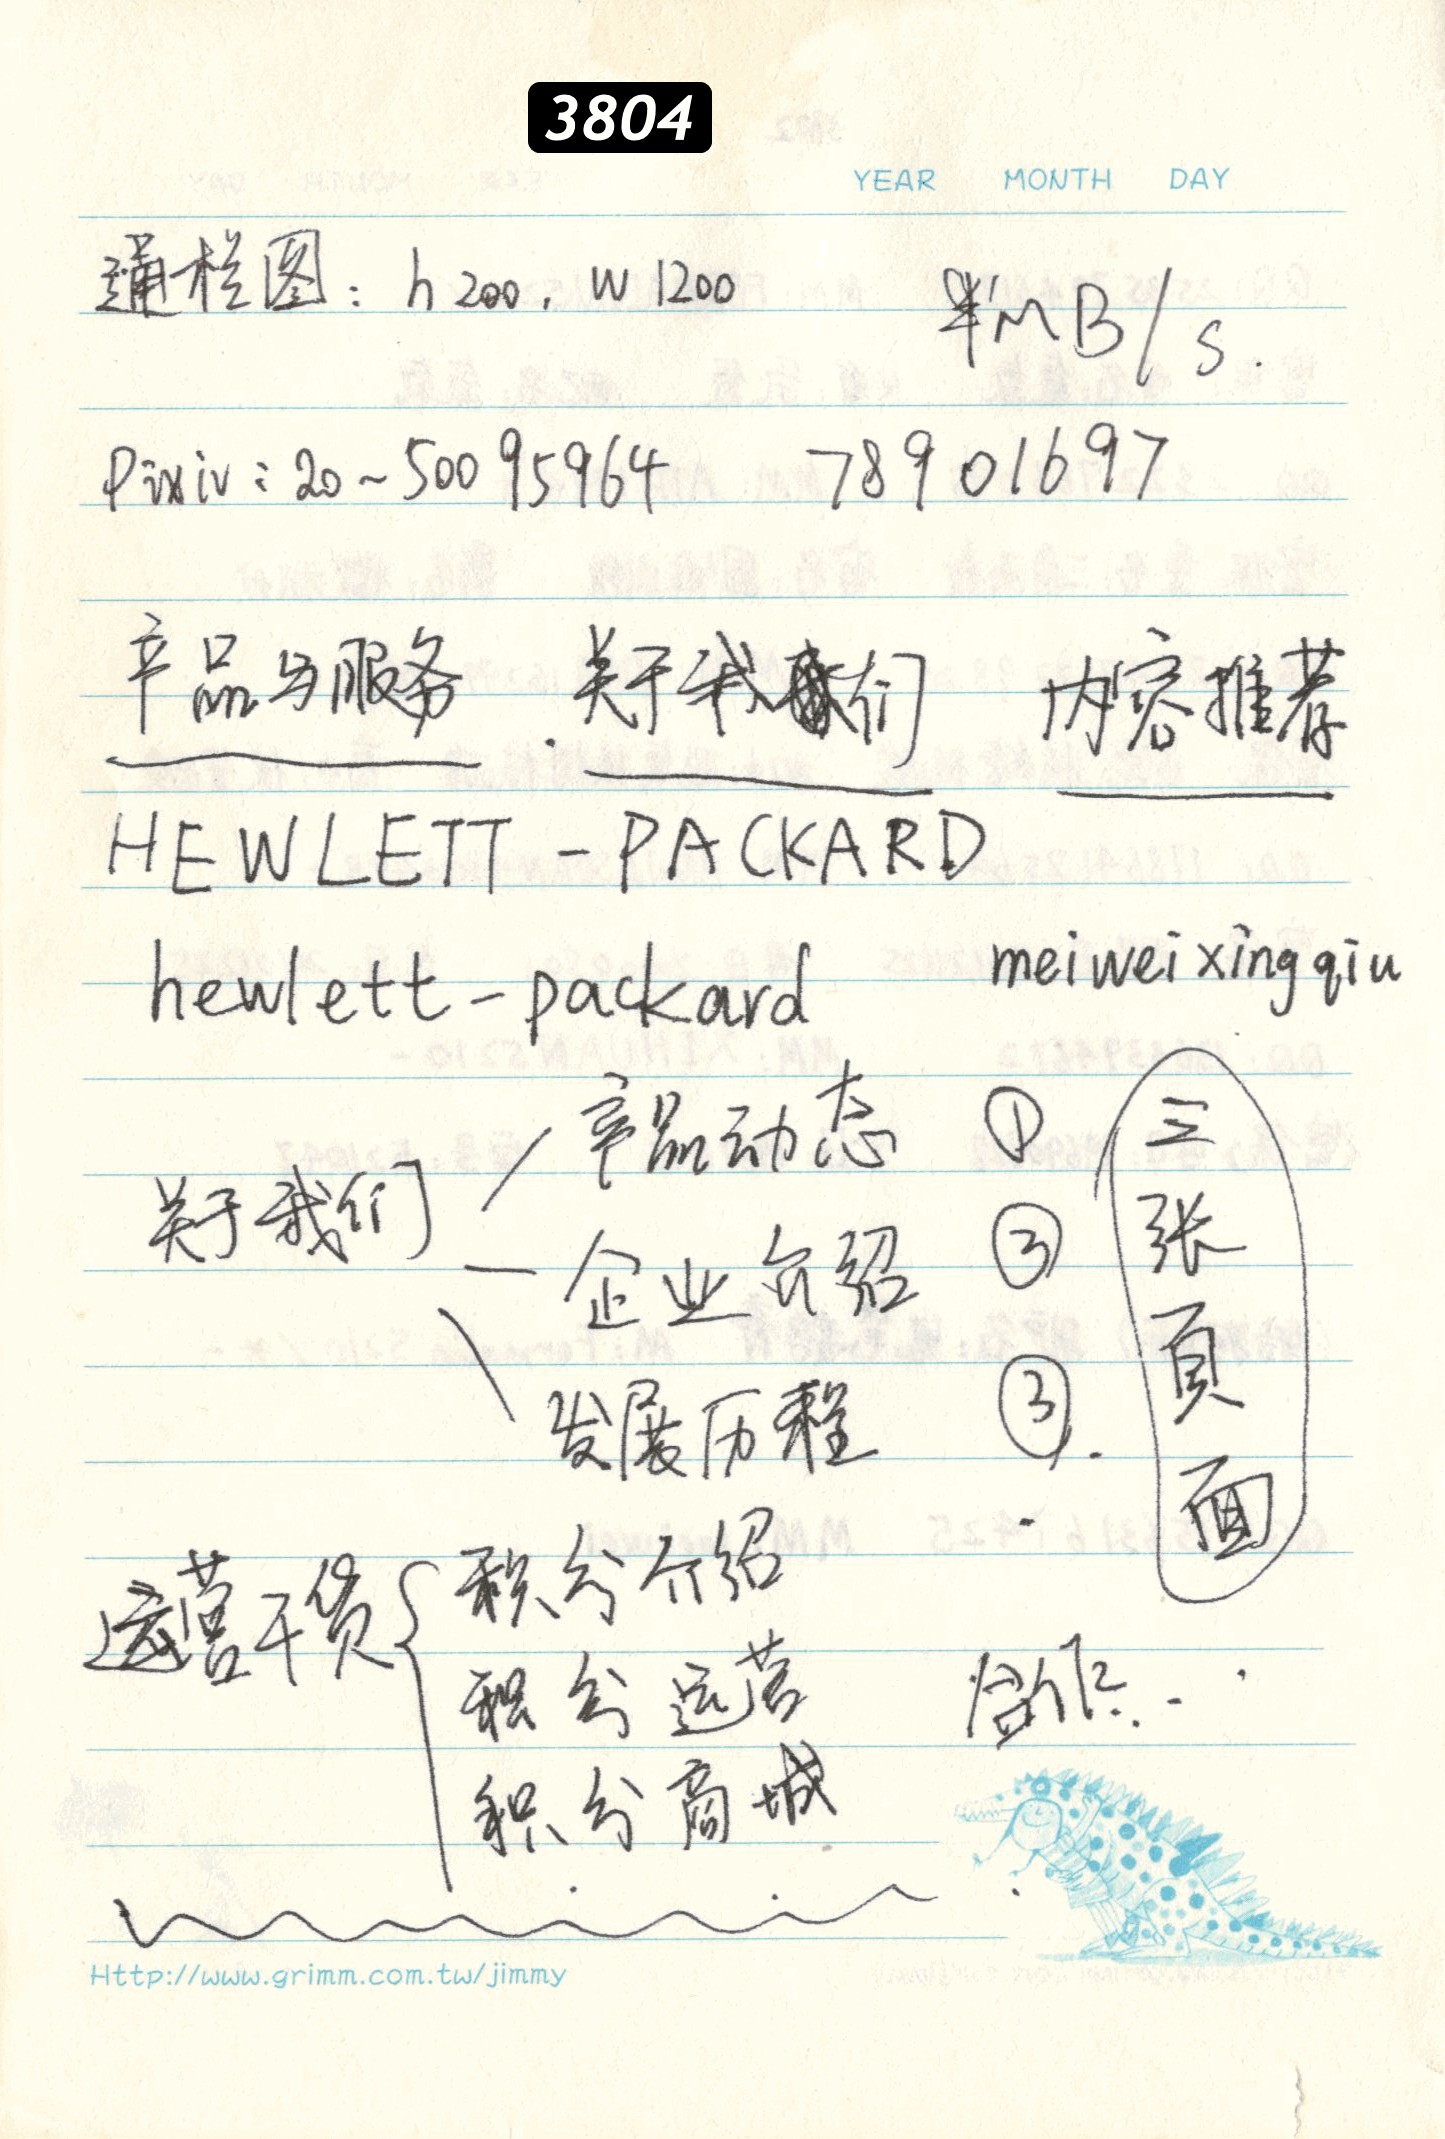 3804
YEAR MONTH DAY
通栏图: h200, W1200
半MB/s.
Pixiv: 20~500 95964 78901697
产品与服务 关于我们 内容推荐
HEWLETT-PACKARD
hewlett-packard meiweixingqiu
产品动态 ①
关于我们
企业介绍 ③
发展历程 ③.
三张頁面
运营干货
积分介绍
积分运营
积分商城
合作...
Http://www.grimm.com.tw/jimmy